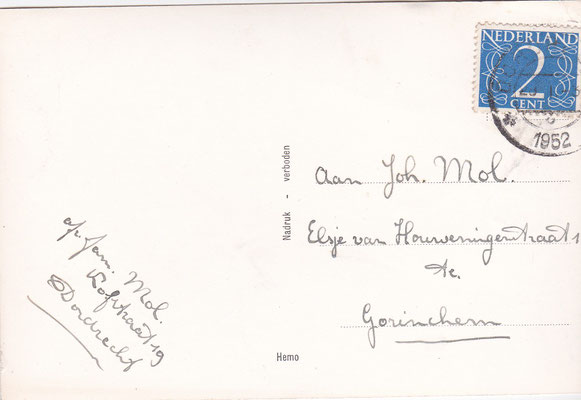 NEDERLAND
2
CENT
1952
Aan Joh. Mol.
Elsje van Houweningenstraat 1
te.
Gorinchem
Nadruk - verboden
Hemo
afz. fam. Mol.
Hofstraat 19
Dordrecht